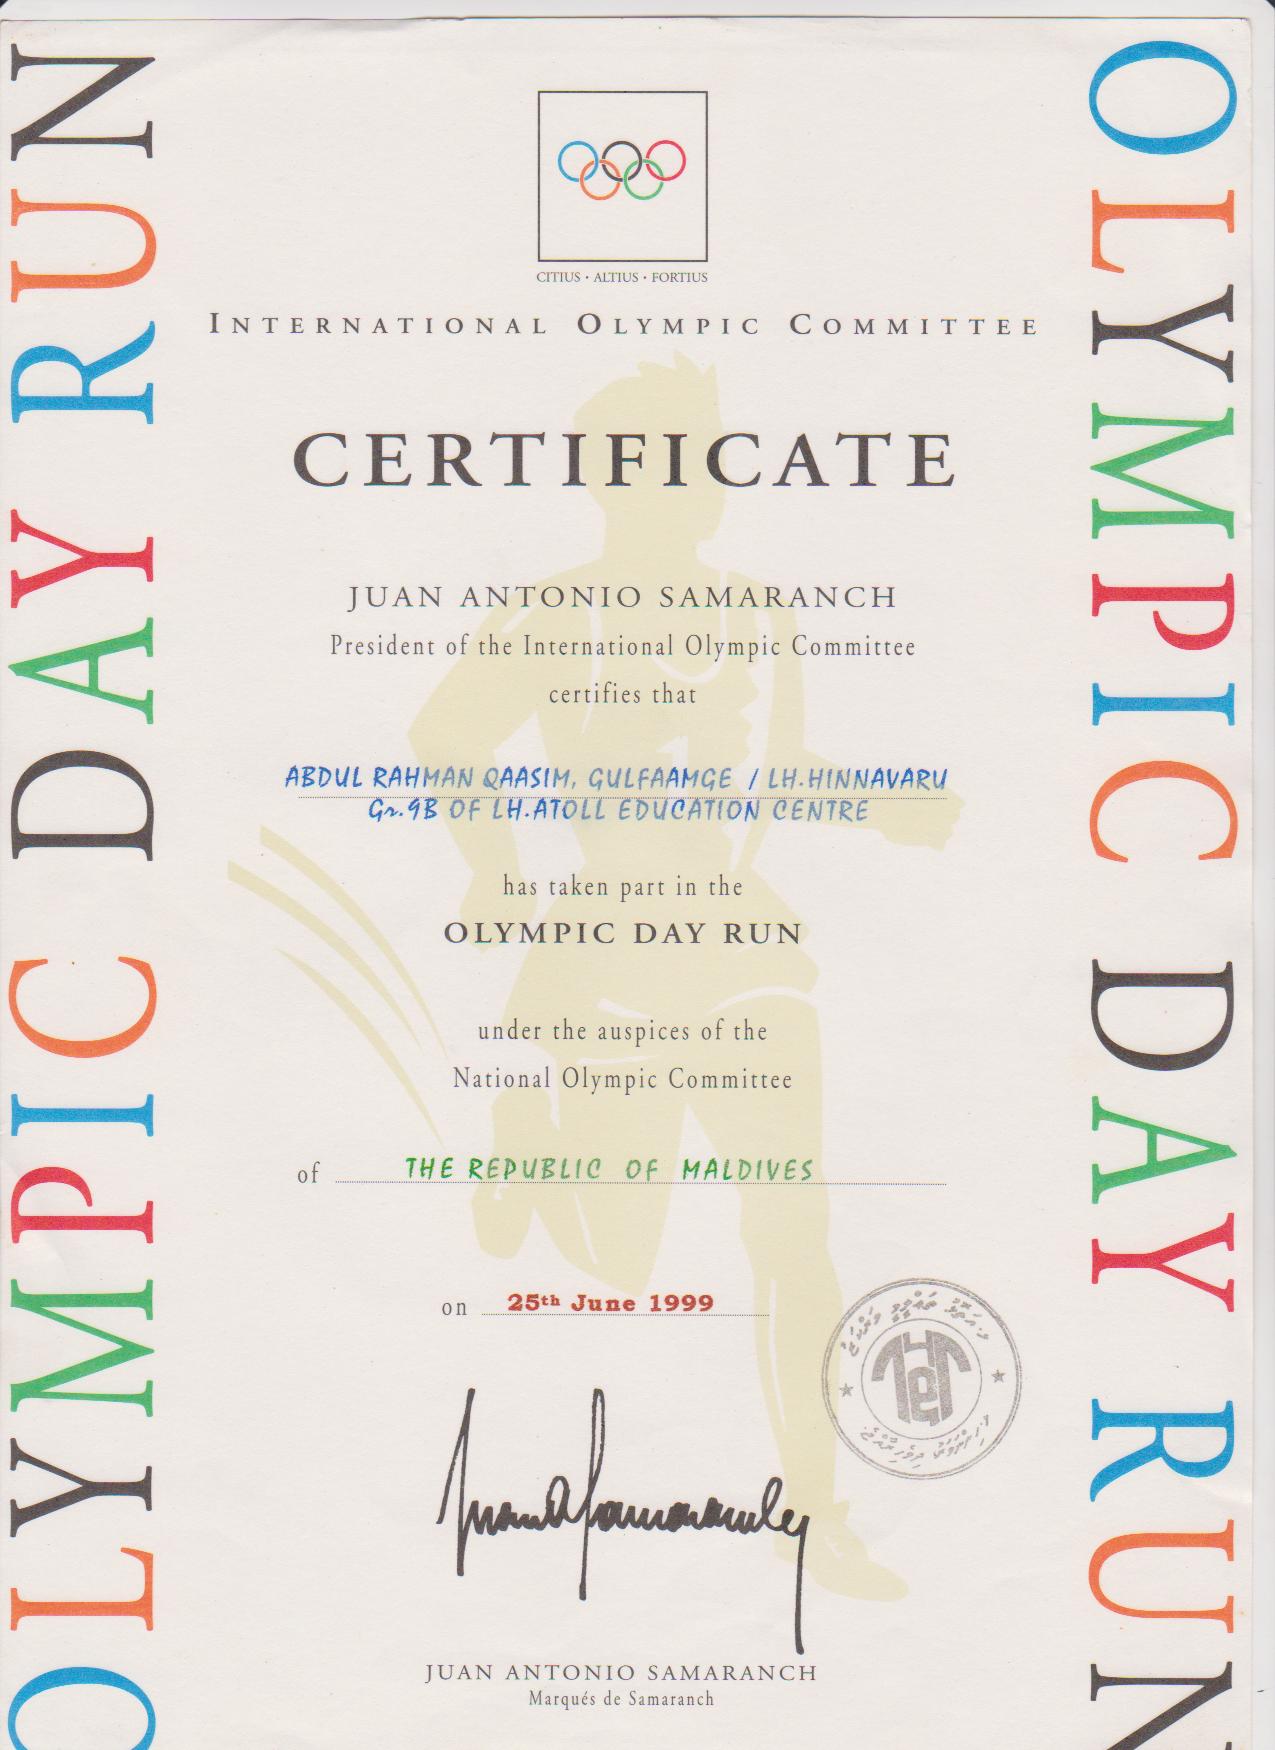 OLYMPIC DAY RUN
CITIUS • ALTIUS • FORTIUS
INTERNATIONAL OLYMPIC COMMITTEE
CERTIFICATE
JUAN ANTONIO SAMARANCH
President of the International Olympic Committee
certifies that
ABDUL RAHMAN QAASIM, GULFAAMGE / LH.HINNAVARU
Gr.9B OF LH.ATOLL EDUCATION CENTRE
has taken part in the
OLYMPIC DAY RUN
under the auspices of the
National Olympic Committee
of THE REPUBLIC OF MALDIVES
on 25th June 1999
JUAN ANTONIO SAMARANCH
Marqués de Samaranch
OLYMPIC DAY RUN